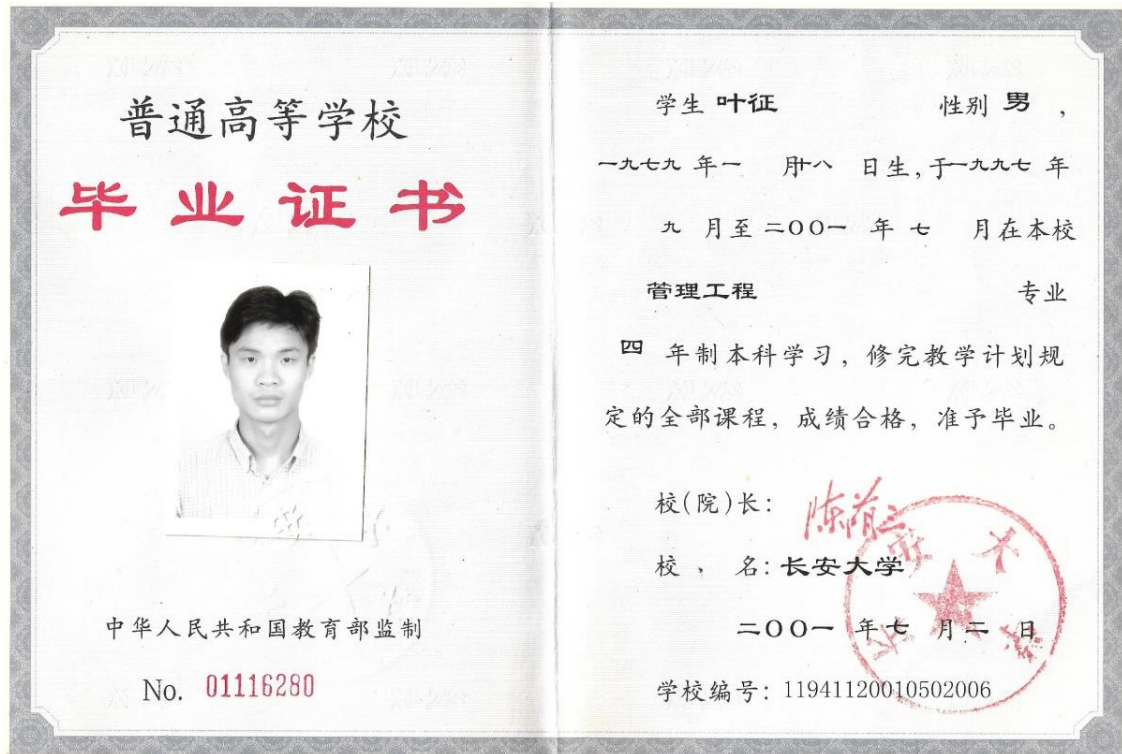 普通高等学校
毕业证书
中华人民共和国教育部监制
No. 01116280
学生 叶征 性别 男 ，
一九七九 年 一 月 十八 日生，于 一九九七 年
九 月至 二〇〇一 年 七 月在本校
管理工程 专业
四 年制本科学习，修完教学计划规
定的全部课程，成绩合格，准予毕业。
校(院)长：
校 、 名: 长安大学
二〇〇一 年 七 月 二 日
学校编号：11941120010502006
长安大学